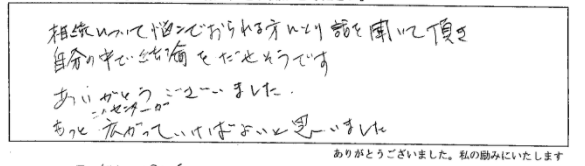 相続について悩んでおられる方にとり話を聞いて頂き
自分の中で結論をだせそうです
ありがとうございました.
このセンターが
もっと広がっていけばよいと思いました
ありがとうございました。私の励みにいたします